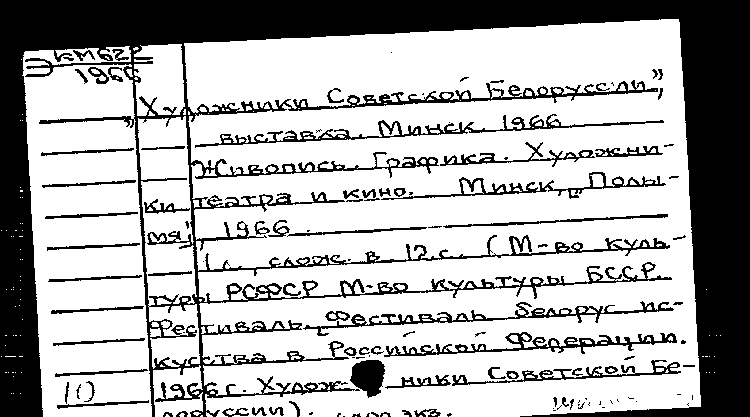 Э КМ62Р
1966
„Художники Советской Белоруссии",
выставка. Минск. 1966
Живопись. Графика. Художни-
ки театра и кино. Минск, „Полы-
мя", 1966.
1 л., слож. в 12 с. (М-во куль-
туры РСФСР М-во культуры БССР.
Фестиваль. Фестиваль белорус ис-
кусства в Российской Федерации.
1966 г. Худож ники Советской Бе-
10
лоруссии). экз.